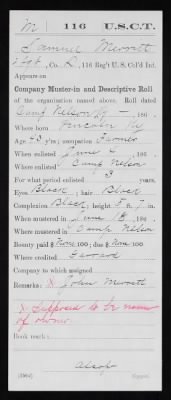 M | 116 | U.S.C.T.
Samuel Merritt
Sgt., Co. A, 116 Reg't U. S. Col'd Inf.
Appears on
Company Muster-in and Descriptive Roll
of the organization named above. Roll dated
Camp Nelson Ky —, 186 .
Where born Lincoln Ky
Age 43 y'rs; occupation Farmer
When enlisted June , 186 .
Where enlisted Camp Nelson
For what period enlisted 3 years.
Eyes Black ; hair Black
Complexion Black ; height 5 ft. 7 in.
When mustered in June 18 , 186 .
Where mustered in Camp Nelson
Bounty paid $ None 100; due $ None 100
Where credited Garrard
Company to which assigned
Remarks: X John Merritt
X Supposed to be name
of owner.
Book mark:
Alsop
Copyist.